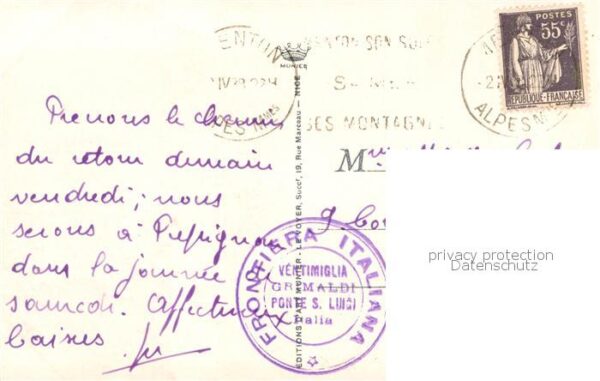 MENTON
ALPES MMES
MENTON SON SOLEIL
SA MER
SES MONTAGNES
POSTES
55c
REPUBLIQUE FRANÇAISE
ALPES M
MUNIER
EDITIONS D'ART MUNIER - LE NOYER, Succr, 19, Rue Marceau - NICE
Prenons le chemin
du retour demain
vendredi; nous
serons à Perpignan
dans la journée de
samedi. Affectueux
baisers
M
FRONTIERA ITALIANA
VENTIMIGLIA
GRIMALDI
PONTE S. LUIGI
Italia
privacy protection
Datenschutz